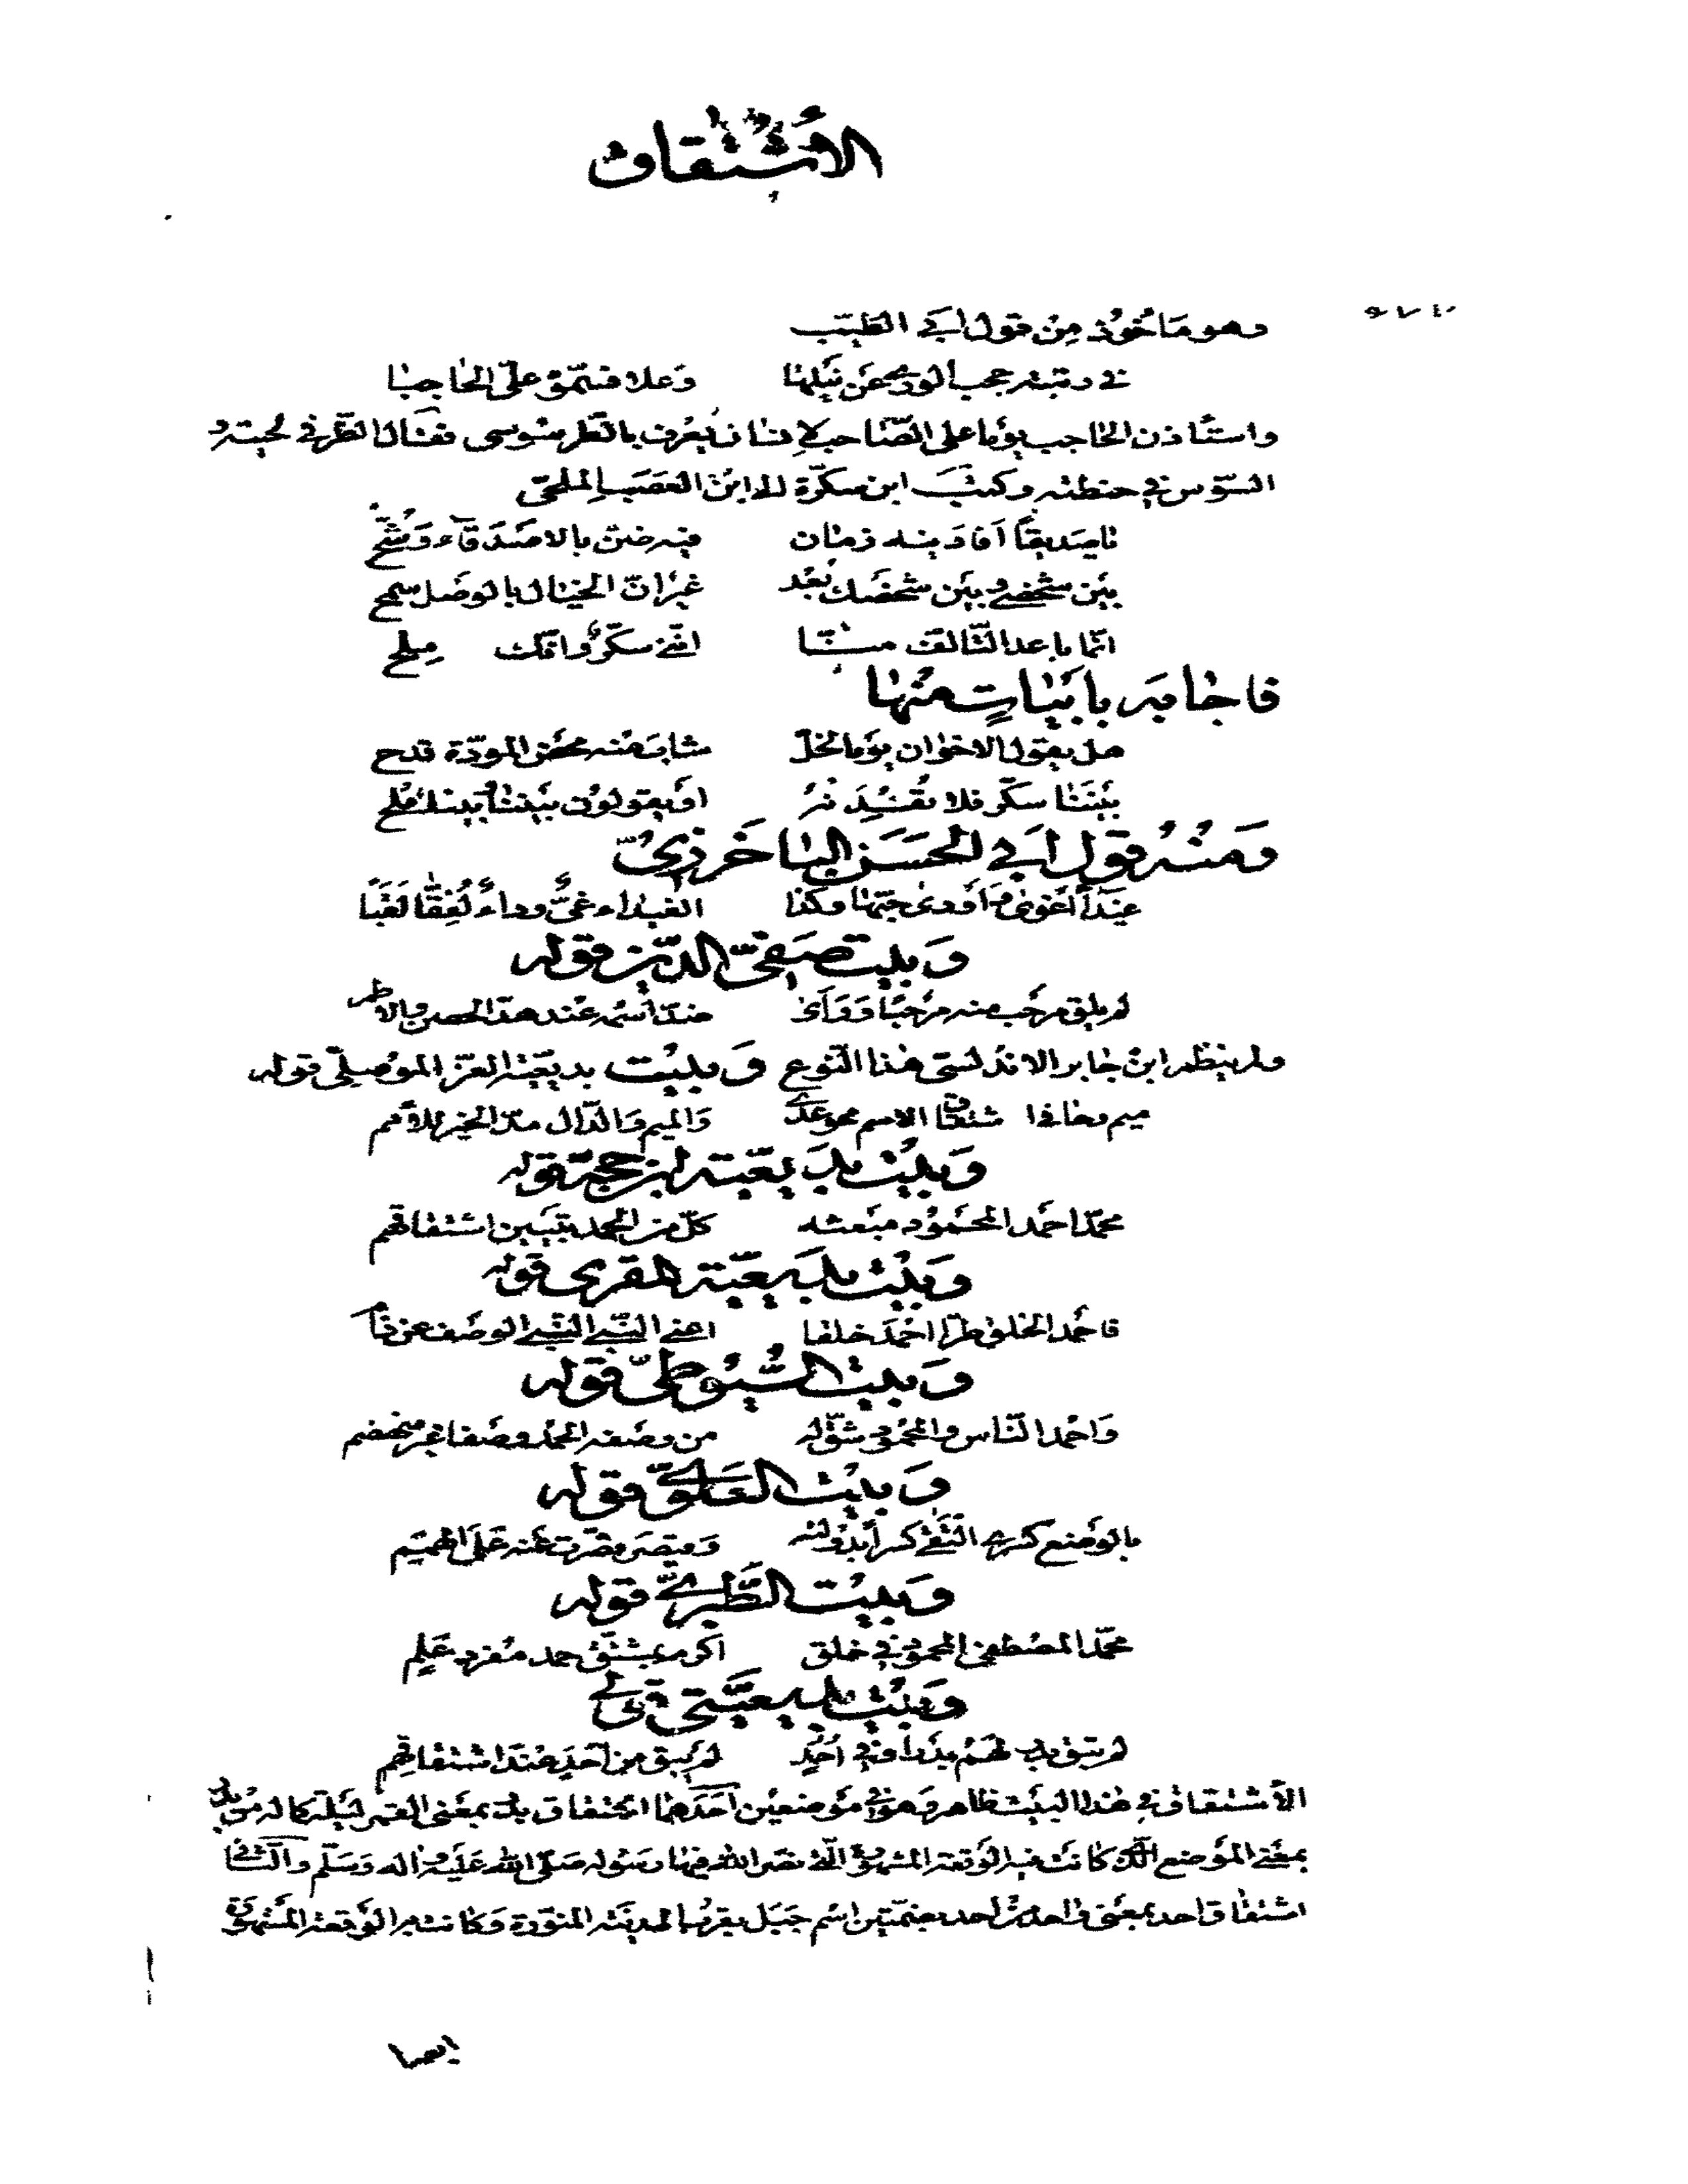 الأشتقاق
وهو مأخوذ من قول أبي الطيّب
في رتبته حجب الورى عن نيلها وعلا فسمّوه علىّ الحاجبا
واستأذن الحاجب يوما على الصّاحب لإنسان يعرف بالطرسوسى فقال الطّر في لحيته و
السّوس في حنطته وكتب ابن سكرّة الى ابن العصب الملحىّ
ياصديقا أفادنيه زمان فيه ضنّ بالاصدقاء وشحّ
بين شخصي وبين شخصك بُعد غير انّ الخيال بالوصل سمح
انّما باعد التّالف منّا انّني سكّر وانّك ملح
فاجابه بابياتٍ منها
هل يقول الاخوان يوما لخلّ شاب منه محض المودّة قدح
بيننا سكّر فلا تفسدنه او يقولون بيننا بينك ملح
ومنه قول أبي الحسن الباخرزيّ
وبيت صفىّ الدّين قوله
لم يلق مرحب منه مرحبا ورأى ضدّ اسمه عند هدّ الحصن والاطم
ولم ينظم ابن جابر الاندلسى هذا النّوع وبيت بديعيّة العزّ الموصلىّ قوله
ميم وحا في اشتقاق الاسم محو عدى والميم والدّال مدّ الخير للامم
وبيت بديعيّة ابن حجة قوله
محمّد احمد المحمود مبعثه كلّ من الحمد تبيين اشتقاقهم
وبيت بديعيّة المقرى قوله
فاحمد الخلق طرّا احمد خلقا اعني النّبي
وبيت السّيوطىّ قوله
واحمد النّاس والمحمود شقّ له من وصفه الحمد وصفا غير منخصم
وبيت العلوىّ قوله
وبيت الطّبرىّ قوله
محمّد المصطفى المحمود في خلق اكرم بمشتقّ حمد مفرد علم
وبيت بديعيّتى قولي
لم يبق بدر لهم بدرا وفي أحد لم يبق من أحد عند اشتقاقهم
الأشتقاق في هذا البيت ظاهر وهو في موضعين أحدهما اشتقاق بدر بمعنى القمر ليلة كماله من بدر
بمعنى الموضع الّذى كانت فيه الوقعة المشهورة الّتى نصر الله فيها رسوله صلّى الله عليه واله وسلّم والثّاني
اشتقاق احد بمعنى واحد من احد بضمّتين اسم جبل بقرب المدينة المنوّرة وكانت به الوقعة المشهورة
ايضا